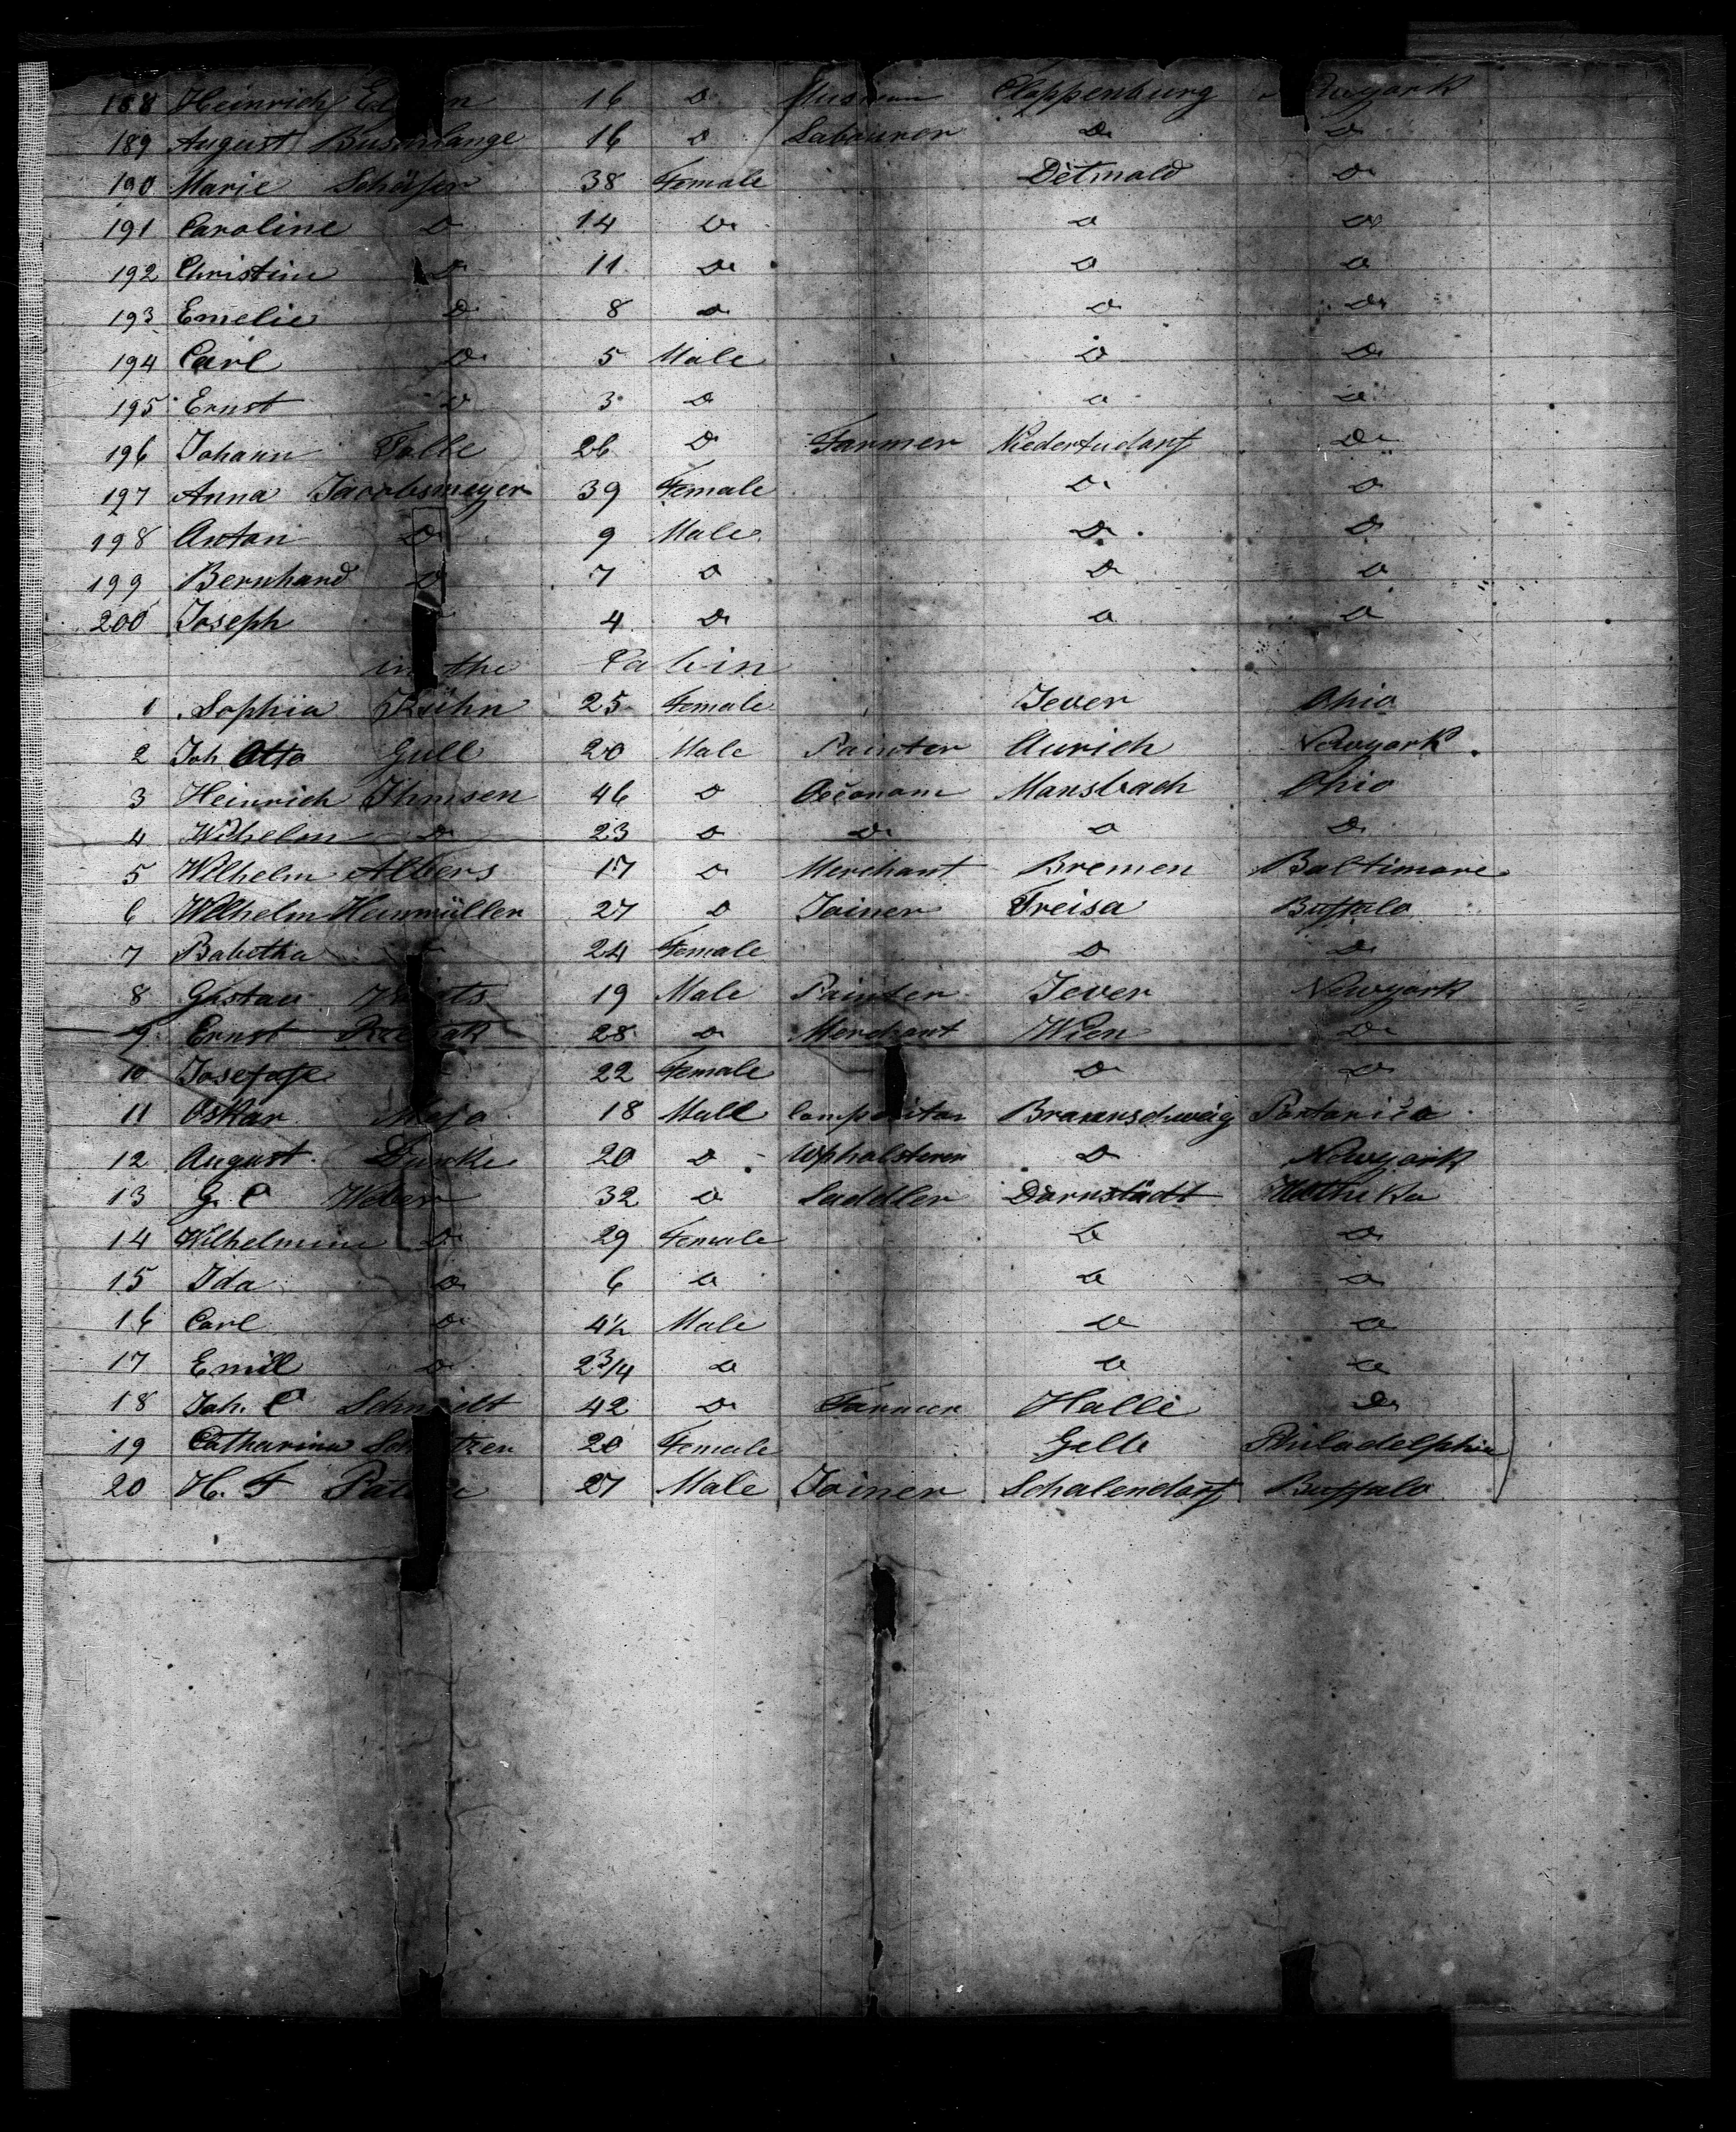 188 Heinrich 16 do Cloppenburg Newyork
189 August 16 do Labourer do do
190 Marie Schäfer 38 Female Detmold do
191 Caroline do 14 do do do
192 Christine do 11 do do do
193 Emelie do 8 do do do
194 Carl do 5 Male do do
195 Ernst do 3 do do do
196 Johann Tolle 26 do Farmer do
197 Anna Jacobsmeyer 39 Female do do
198 Anton do 9 Male do do
199 Bernhard do 7 do do do
200 Joseph 4 do do do
in the Cabin
1 Sophia Kühn 25 Female Jever Ohio
2 Joh Otto Gull 20 Male Painter Aurich Newyork
3 Heinrich Ihmsen 46 do Oeconom Mansbach Ohio
4 Wilhelm do 23 do do do do
5 Wilhelm Albers 17 do Merchant Bremen Baltimore
6 Wilhelm Heinmüller 27 do Joiner Treisa Buffalo
7 Babetha 24 Female do do
8 Gustav 19 Male Painter Jever Newyork
9 Ernst 28 do Merchant Wien do
10 22 Female do do
11 Oskar 18 Male Compositor Braunschweig
12 August Duncke 20 do Upholsterer do Newyork
13 G. C Weber 32 do Saddler Darmstadt
14 Wilhelmine do 29 Female do do
15 Ida do 6 do do do
16 Carl do 4½ Male do do
17 Emil do 2 3/4 do do do
18 Joh. C Schmidt 42 do Halle do
19 Catharina 20 Female Gelle Philadelphia
20 H. F 27 Male Joiner Schalendorf Buffalo